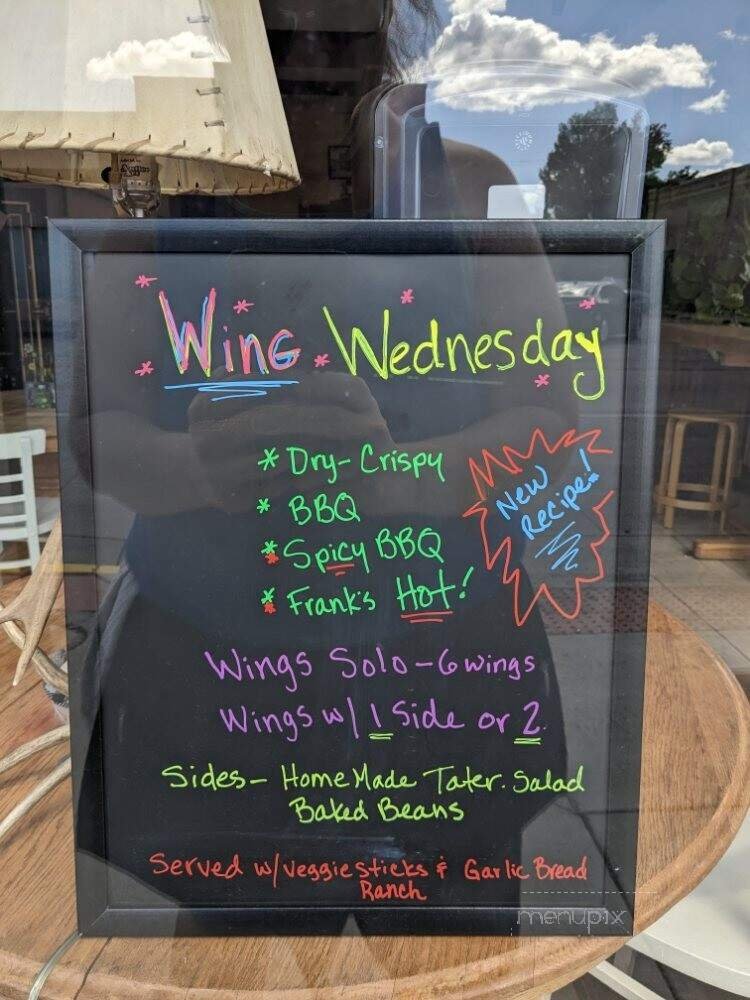 Wing Wednesday
* Dry-Crispy
* BBQ
* Spicy BBQ
* Frank's Hot!
New
Recipe!
Wings Solo - 6 wings
Wings w/ 1 Side or 2
Sides - HomeMade Tater. Salad
Baked Beans
Served w/ veggie sticks & Garlic Bread
Ranch
menupix